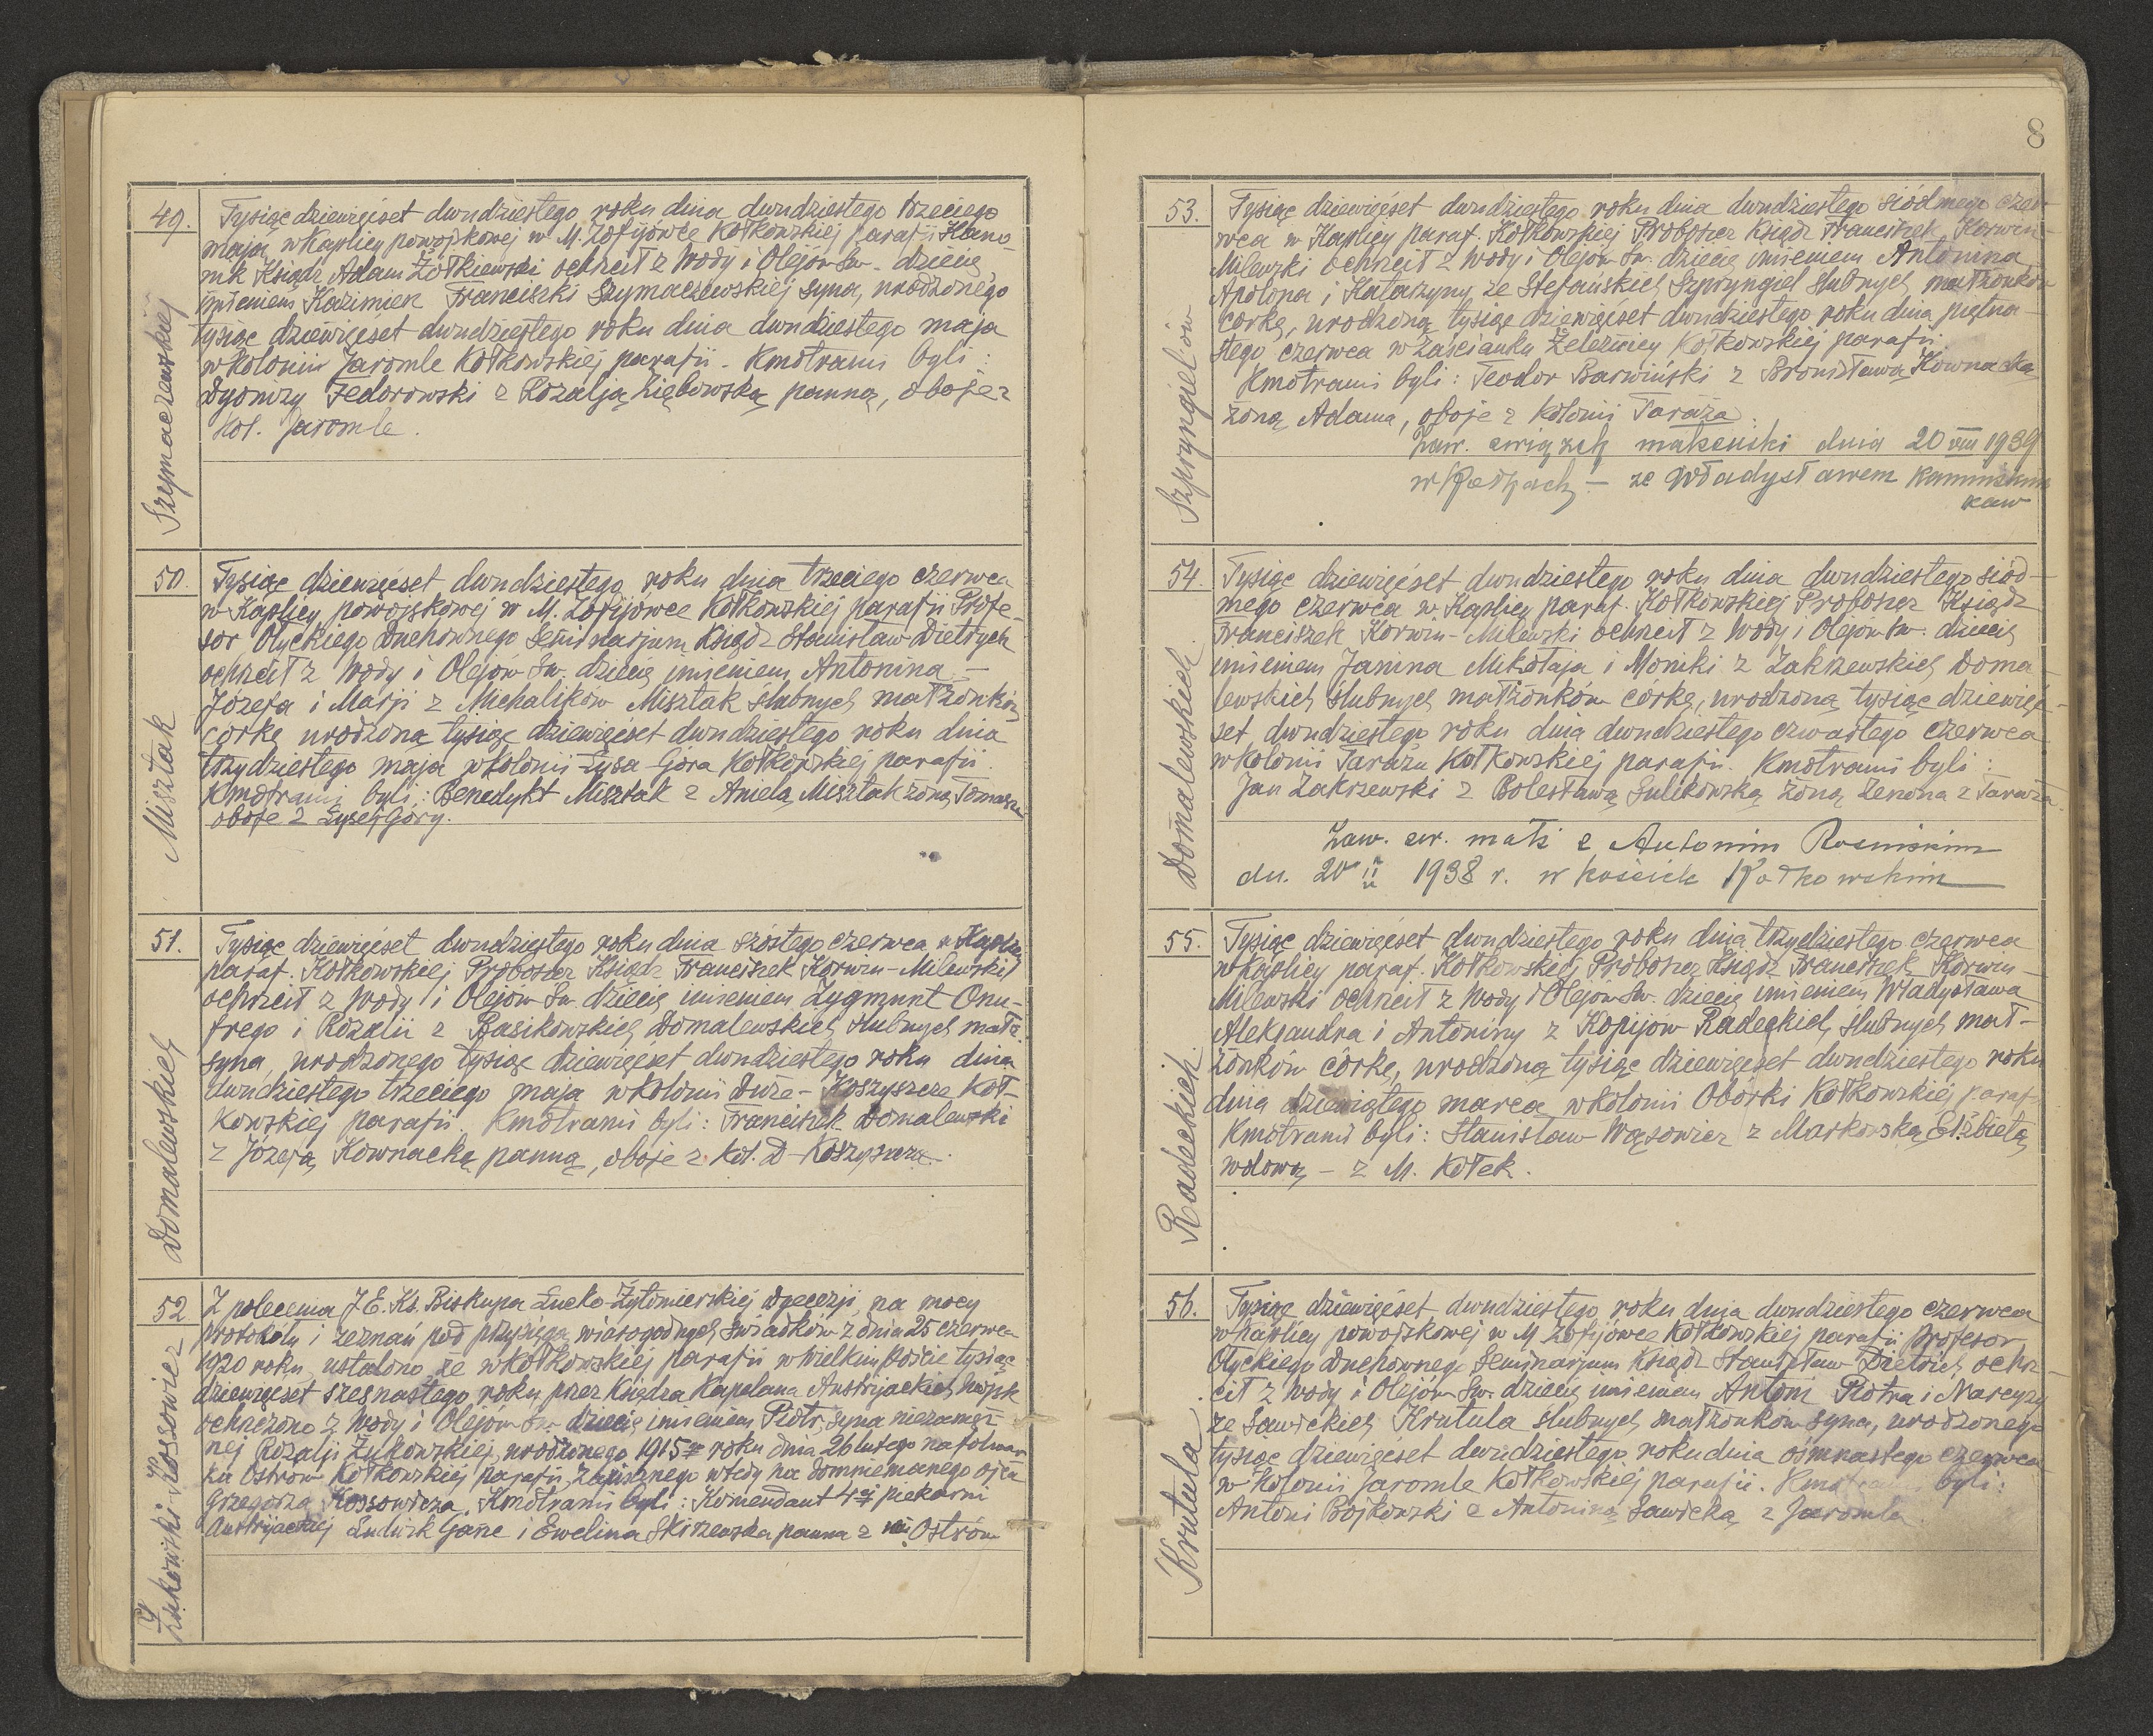 49.
Szymaczewskiej
Tysiąc dziewięćset dwudziestego roku dnia dwudziestego trzeciego
maja w Kaplicy powojskowej w M. Zofijówce Kołkowskiej parafii Kano-
nik Ksiądz Adam Żółkiewski ochrzcił z Wody i Olejów Św. dziecię
imieniem Kazimierz Franciszki Szymaczewskiej syna, urodzonego
tysiąc dziewięćset dwudziestego roku dnia dwudziestego maja
w kolonii Jaromle Kołkowskiej parafii. Kmotrami byli:
Dyonizy Fedorowski z Rozalją Ziębowską panną, oboje z
Kol. Jaromle.
50.
Misztak
Tysiąc dziewięćset dwudziestego roku dnia trzeciego czerwca
w Kaplicy powojskowej w M. Zofijówce Kołkowskiej parafii Profe-
sor Ołyckiego Duchownego Seminarjum Ksiądz Stanisław Dietrych
ochrzcił z Wody i Olejów Św. dziecię imieniem Antonina –
Józefa i Marji z Michalików Misztak ślubnych małżonków
córkę urodzoną tysiąc dziewięćset dwudziestego roku dnia
trzydziestego maja w kolonii Łysa-Góra Kołkowskiej parafii.
Kmotrami byli: Benedykt Misztak z Anielą Misztak żoną Tomasza
oboje z Łysej Góry.
51.
Domalewskich
Tysiąc dziewięćset dwudziestego roku dnia szóstego czerwca w Kaplicy
paraf. Kołkowskiej Proboszcz Ksiądz Franciszek Korwin-Milewski
ochrzcił z Wody i Olejów Św. dziecię imieniem Zygmunt Onu-
frego i Rozalii z Basikowskich Domalewskich ślubnych małż.
syna, urodzonego tysiąc dziewięćset dwudziestego roku dnia
dwudziestego trzeciego maja w kolonii Duże-Koszyszcze Koł-
kowskiej parafii. Kmotrami byli: Franciszek Domalewski
z Józefą Kownacką panną, oboje z kol. D-Koszyszcza.
52
Żukowski-Kossowicz
Z polecenia J.E. Ks. Biskupa Łucko-Żytomierskiej Dyecezji, na mocy
protokółu i zeznań pod przysięgą wiarogodnych świadków z dnia 25 czerwca
1920 roku, ustalono, że w Kołkowskiej parafii w Wielkim Poście tysiąc
dziewięćset szesnastego roku przez Księdza Kapelana Austryjackich wojsk
ochrzczono z Wody i Olejów Św. dziecię imieniem Piotr, syna niezamęż-
nej Rozalji Żukowskiej, urodzonego 1915 roku dnia 26 lutego na folwar-
ku Ostrów Kołkowskiej parafii, zapisanego wtedy na domniemanego ojca
Grzegorza Kossowicza. Kmotrami byli: Komendant 4ej piekarni
Austryjackiej Ludwik Gane i Ewelina Skirzewska panna z Ostrów
8
53.
Szpryngielów
Tysiąc dziewięćset dwudziestego roku dnia dwudziestego siódmego czer-
wca w Kaplicy paraf. Kołkowskiej Proboszcz Ksiądz Franciszek Korwin-
Milewski ochrzcił z Wody i Olejów Św. dziecię imieniem Antonina
Apolona i Katarzyny ze Stefańskich Szpryngiel ślubnych małżonków
córkę, urodzoną tysiąc dziewięćset dwudziestego roku dnia piętna-
stego czerwca w zaścianku Zeleznicy Kołkowskiej parafii.
Kmotrami byli: Teodor Barwiński z Bronisławą Kownacką
żoną Adama, oboje z kolonii Taraża.
Zaw. związek małżeński dnia 20 VIII 1939
w Kołkach – ze Władysławem
kaw
54.
Domalewskich
Tysiąc dziewięćset dwudziestego roku dnia dwudziestego siód-
mego czerwca w Kaplicy paraf. Kołkowskiej Proboszcz Ksiądz
Franciszek Korwin-Milewski ochrzcił z Wody i Olejów Św. dziecię
imieniem Janina Mikołaja i Moniki z Zakrzewskich Doma-
lewskich ślubnych małżonków córkę, urodzoną tysiąc dziewięć-
set dwudziestego roku dnia dwudziestego czwartego czerwca
w kolonii Tarażu Kołkowskiej parafii. Kmotrami byli:
Jan Zakrzewski z Bolesławą Sulikowską żoną Zenona z Taraża.
Zaw. zw. małż z Antonim Rosińskim
dn. 20 II 1938 r. w kościele Kołkowskim
55.
Radeckich
Tysiąc dziewięćset dwudziestego roku dnia trzydziestego czerwca
w kaplicy paraf. Kołkowskiej Proboszcz Ksiądz Franciszek Korwin-
Milewski ochrzcił z Wody i Olejów Św. dziecię imieniem Władysława
Aleksandra i Antoniny z Kopijów Radeckich ślubnych mał-
żonków córkę, urodzoną tysiąc dziewięćset dwudziestego roku
dnia dziewiątego marca w kolonii Obórki Kołkowskiej paraf.
Kmotrami byli: Stanisław Wąsowicz z Markowską Elżbietą
wdową – z M. Kołek.
56.
Krutula
Tysiąc dziewięćset dwudziestego roku dnia dwudziestego czerwca
w kaplicy powojskowej w M Zofijówce Kołkowskiej parafii Profesor
Ołyckiego Duchownego Seminarjum Ksiądz Stanisław Dietrich ochrz-
cił z Wody i Olejów Św. dziecię imieniem Antoni Piotra i Narcyzy
ze Sawickich Krutula ślubnych małżonków syna, urodzonego
tysiąc dziewięćset dwudziestego roku dnia ośmnastego czerwca
w Kolonii Jaromle Kołkowskiej parafii. Kmotrami byli:
Antoni Bojkowski z Antoniną Sawicką z Jaromla